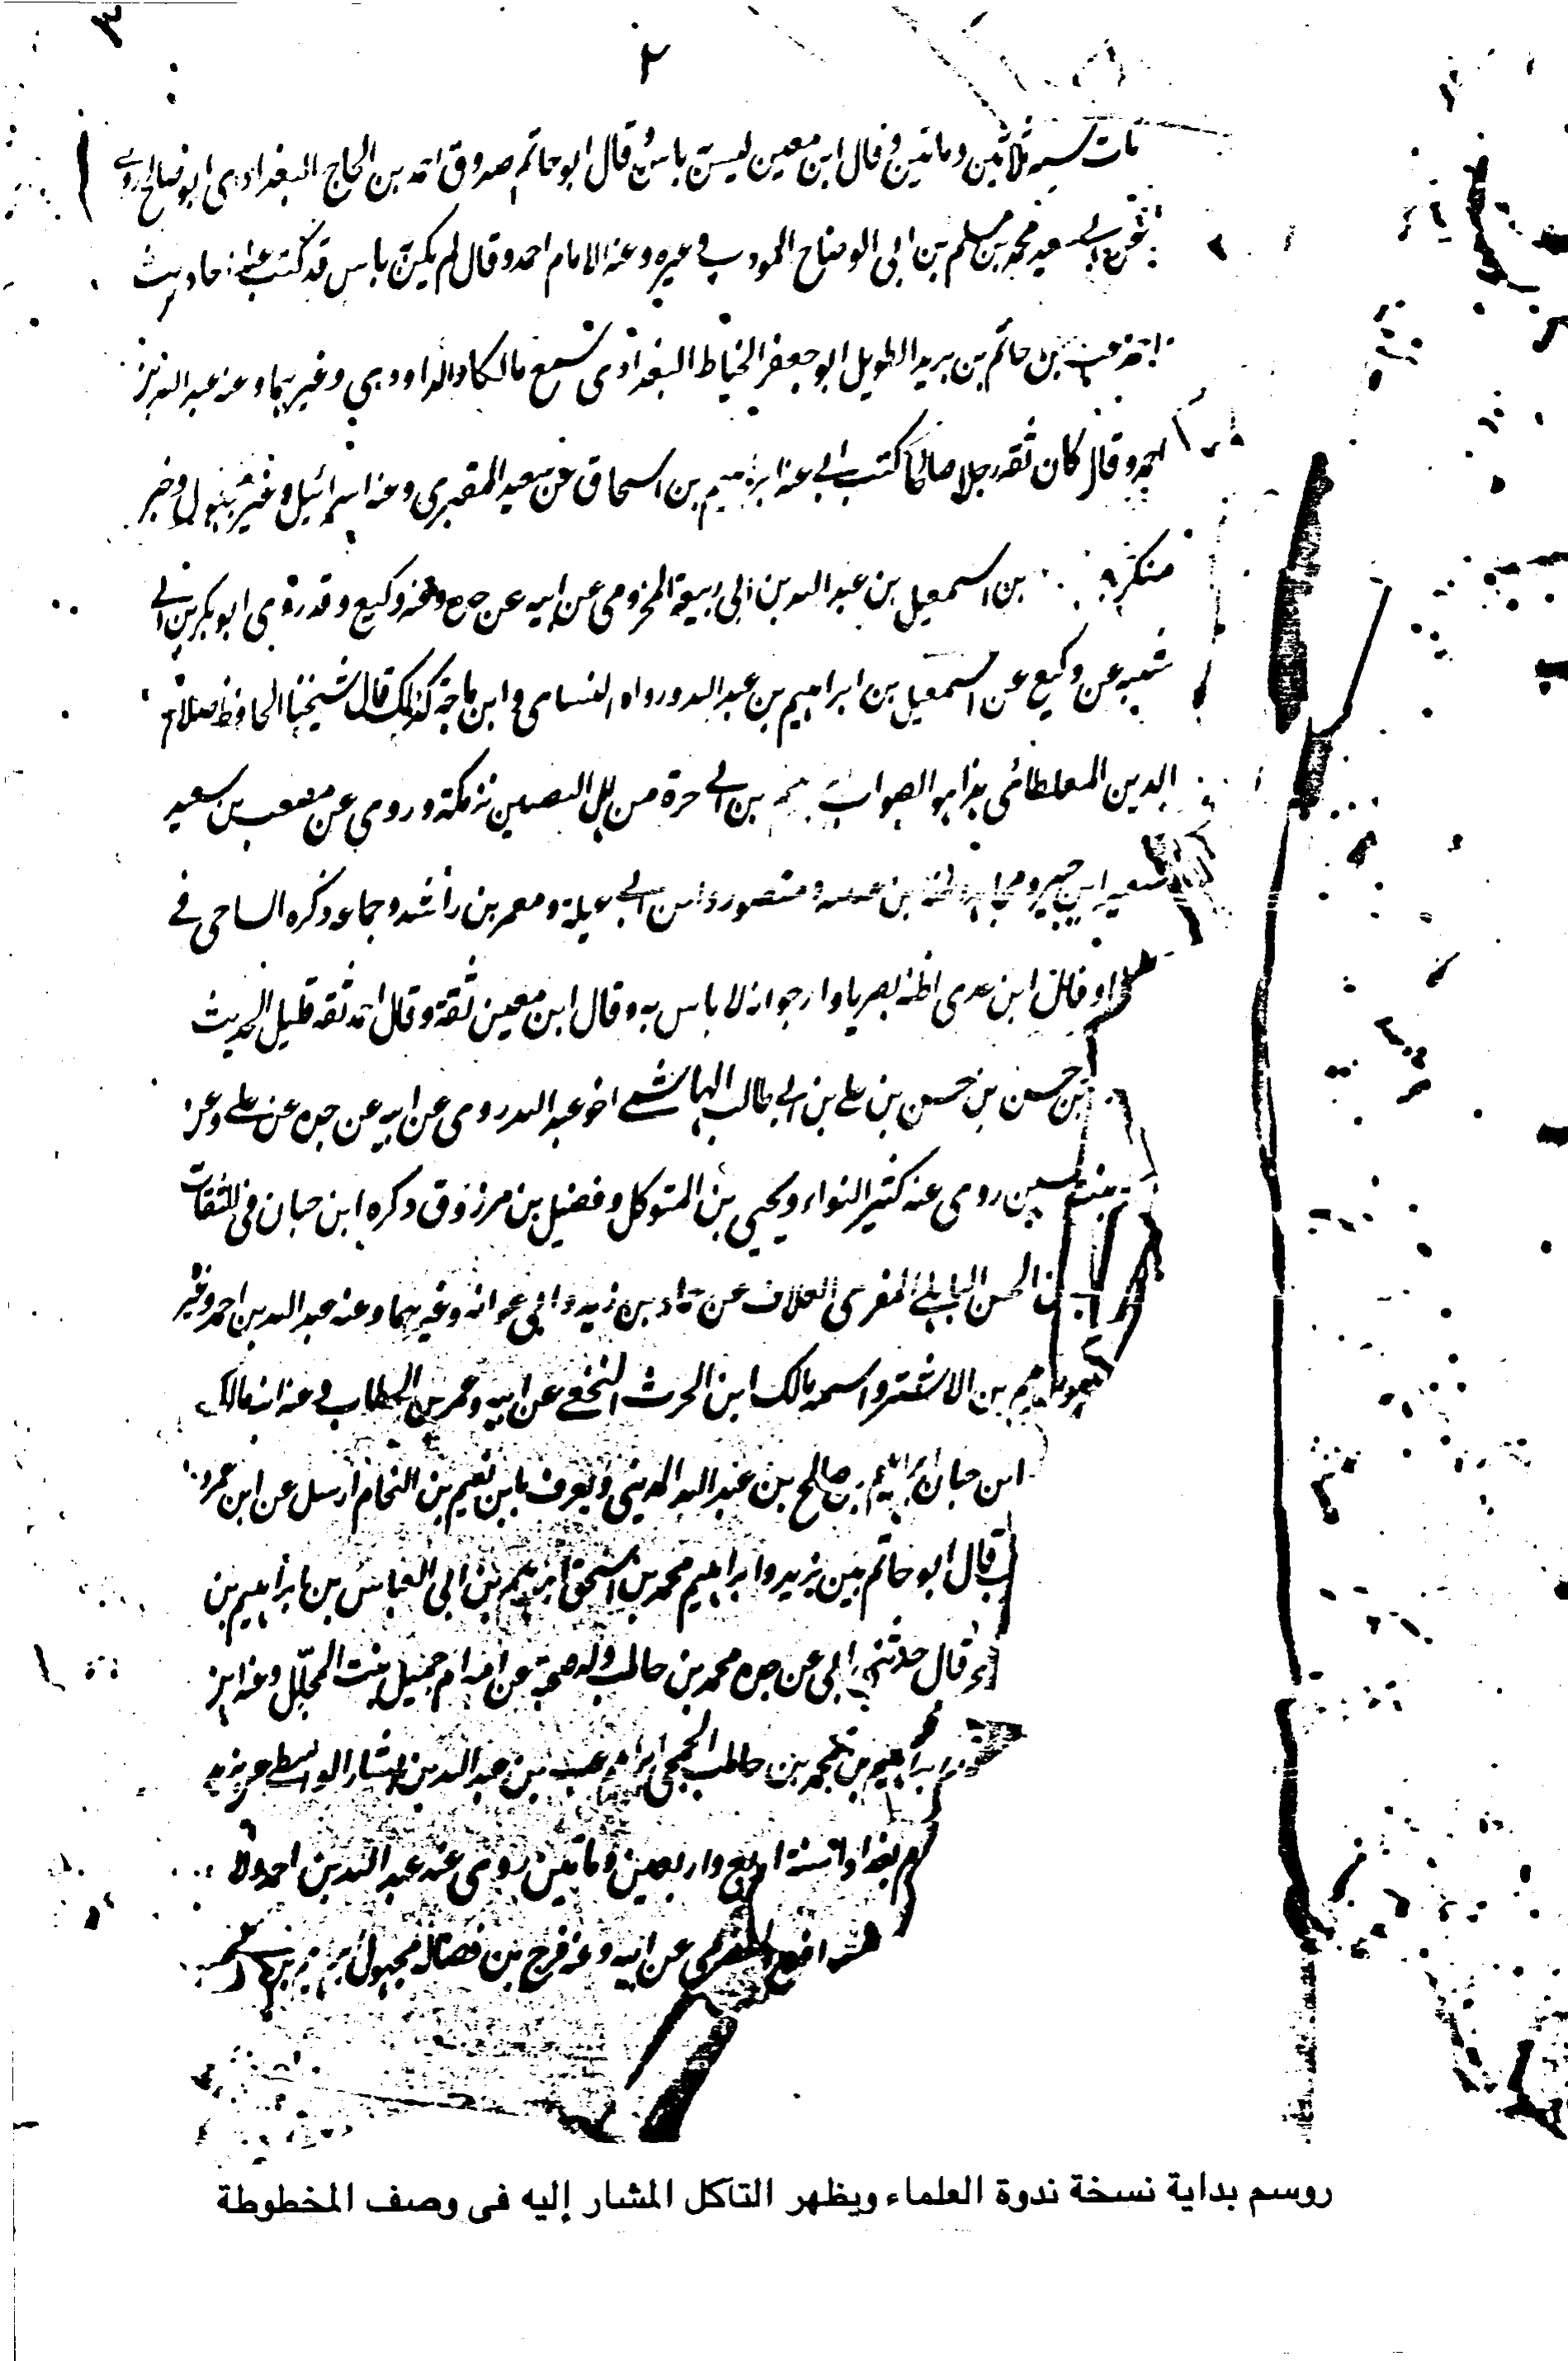 ٣
٢
مات سنه ثلاثين ومائتين وقال ابن معين ليس به باس وقال ابو حاتم صدوق احمد بن الحجاج البغدادى ابو صالح روى
عن ابى سعيد محمد بن مسلم بن ابى الوضاح المودب وغيره وعنه الامام احمد وقال لم يكن به باس قد كتبت عنه احاديث
بن حاتم بن يزيد الطويل ابو جعفر الخياط البغدادى سمع مالكا والداوردى وغيرهما وعنه عبد الله بن
احمد وقال كان ثقه رجلا صالحا كتب ابى عنه ابراهيم بن اسحاق عن سعيد المقبرى وعنه اسرائيل وغيره مجهول وخبر
منكر بن اسمعيل بن عبد الله بن ابى ربيعة المخزومى عن ابيه عن جده وعنه وكيع وقد روى ابو بكر بن ابى
شيبه عن وكيع عن اسمعيل بن ابراهيم بن عبد الله ورواه النساى وابن ماجة كذلك قال شيخنا الحافظ علاء
الدين المغلطائى هذا هو الصواب بن ابى حرة من اهل النصيبين نزل مكة وروى عن مصعب بن سعيد
سعيد ابن جبير ومجاهد وعنه بن عيينه ومنصور وابن ابى عبلة ومعمر بن راشد وجماعه ذكره الساجى فى
وقال ابن عدى اظنه بصريا وارجو انه لا باس به وقال ابن معين ثقة وقال احمد ثقه قليل الحديث
بن حسن بن حسن بن على بن ابى طالب الهاشمى اخو عبد الله روى عن ابيه عن جده عن على وعن
بنت حسين روى عنه كثير النواء ويحيى بن المتوكل وفضيل بن مرزوق ذكره ابن حبان فى الثقات
بن الحسن الباهلى المقرى العلاف عن حماد بن زيد وابى عوانه وغيرهما وعنه عبد الله بن احمد وغيره
بن الاشتر واسمه مالك ابن الحرث النخعى عن ابيه وعمر بن الخطاب وعنه ابنه مالك
ابن حبان ابراهيم بن صالح بن عبد الله المدينى ويعرف بابن نعيم بن النحام ارسل عن ابن عمر
قال ابو حاتم بين يزيد وابراهيم محمد بن اسحق ابراهيم بن ابى العباس بن ابراهيم بن
قال حدثنى ابى عن جده محمد بن حاطب وله صحبة عن امه ام جميل بنت المجلل وعنه ابن
ابراهيم بن محمد بن حاطب الجمحى ابراهيم بن عبد الله بن بشار الواسطى
بغداد سنة اربع واربعين ومائتين روى عنه عبد الله بن احمد
رافع عن ابيه وعنه فرج بن فضاله مجهول ابراهيم بن
روسم بداية نسخة ندوة العلماء ويظهر التاكل المشار إليه فى وصف المخطوطة